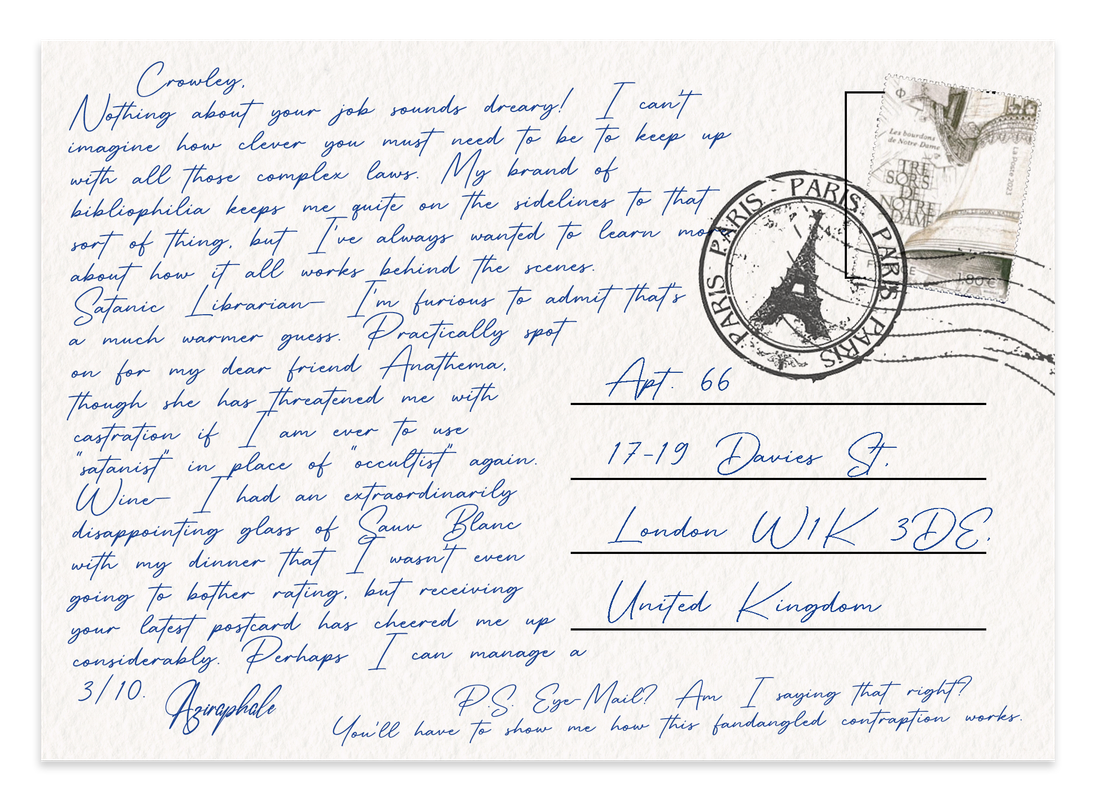 Crowley,
Nothing about your job sounds dreary! I can't
imagine how clever you must need to be to keep up
with all those complex laws. My brand of
bibliophilia keeps me quite on the sidelines to that
sort of thing, but I've always wanted to learn more
about how it all works behind the scenes.
Satanic Librarian— I'm furious to admit that's
a much warmer guess. Practically spot
on for my dear friend Anathema,
though she has threatened me with
castration if I am ever to use
"satanist" in place of "occultist" again.
Wine— I had an extraordinarily
disappointing glass of Sauv Blanc
with my dinner that I wasn't even
going to bother rating, but receiving
your latest postcard has cheered me up
considerably. Perhaps I can manage a
3/10.
Aziraphale
P.S. Eye-Mail? Am I saying that right?
You'll have to show me how this fandangled contraption works.
Les bourdons
de Notre-Dame
TRE
SORS
DE
NOTRE
DAME
La Poste 2023
1,80 €
PARIS · PARIS · PARIS · PARIS · PARIS
Apt. 66
17-19 Davies St.
London W1K 3DE.
United Kingdom